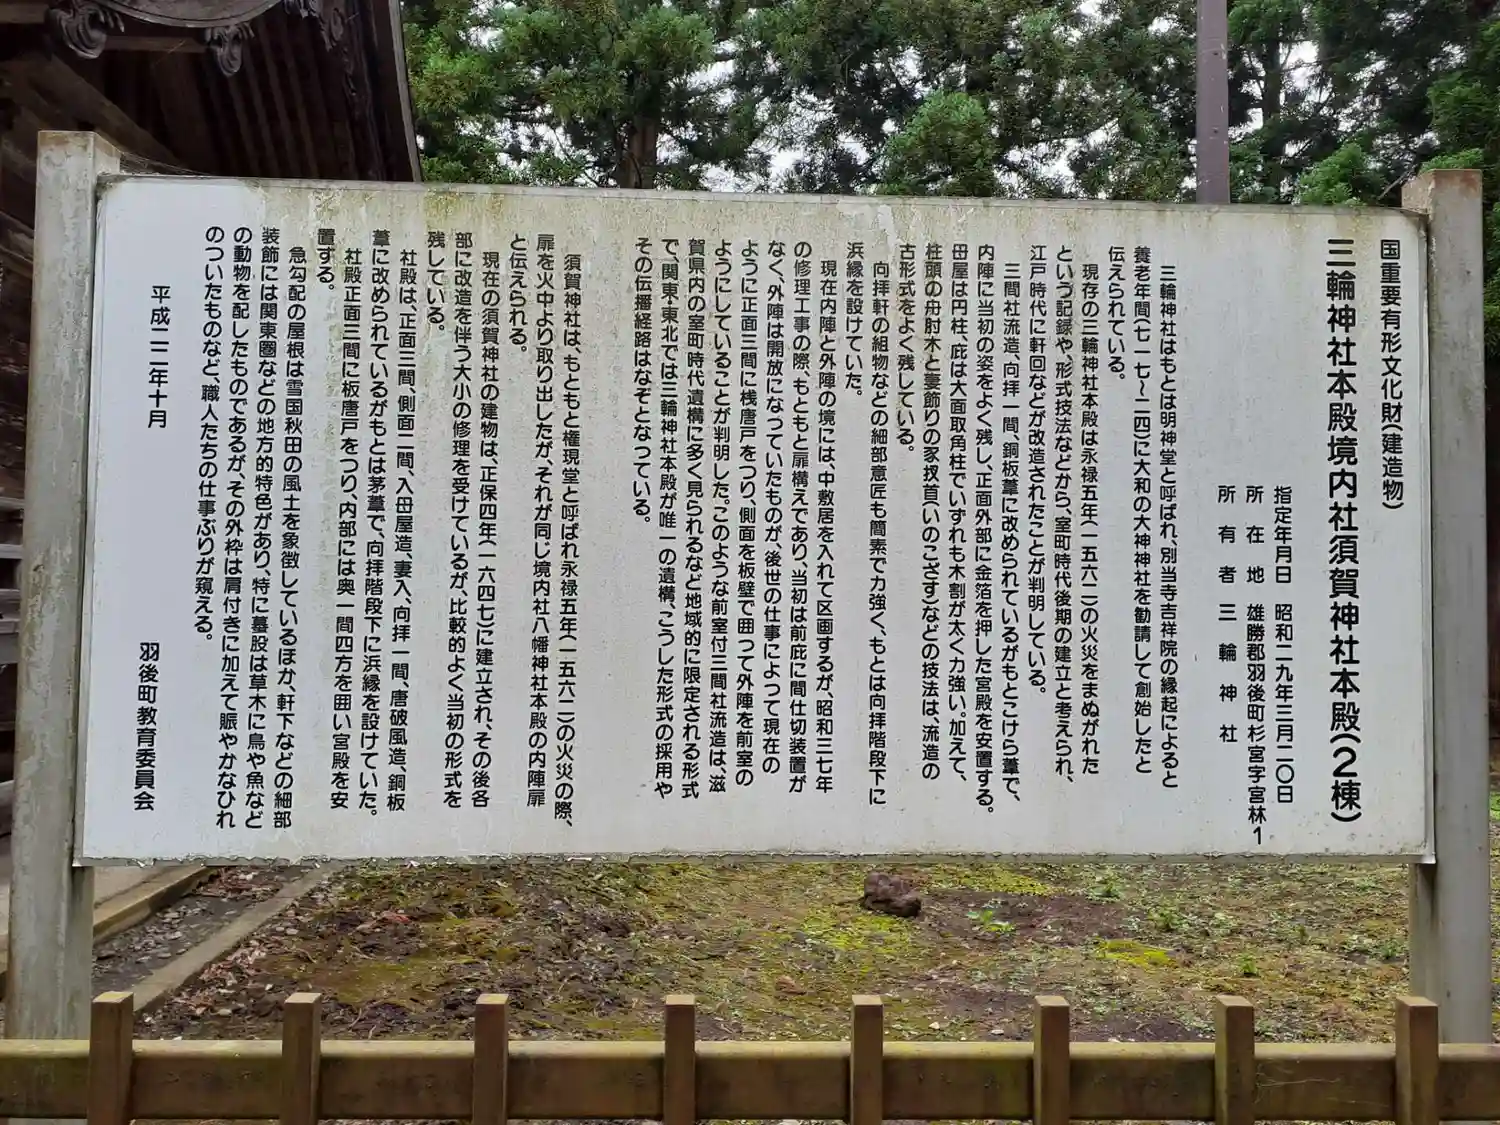 国重要有形文化財(建造物)
三輪神社本殿境内社須賀神社本殿(2棟)
指定年月日 昭和二九年三月二〇日
所在地 雄勝郡羽後町杉宮字宮林1
所有者 三輪神社
三輪神社はもとは明神堂と呼ばれ、別当寺吉祥院の縁起によると
養老年間(七一七～二四)に大和の大神神社を勧請して創始したと
伝えられている。
現存の三輪神社本殿は永禄五年(一五六二)の火災をまぬがれた
という記録や、形式技法などから、室町時代後期の建立と考えられ、
江戸時代に軒回などが改造されたことが判明している。
三間社流造、向拝一間、銅板葺に改められているがもとこけら葺で、
内陣に当初の姿をよく残し、正面外部に金箔を押した宮殿を安置する。
母屋は円柱、庇は大面取角柱でいずれも木割が太く力強い。加えて、
柱頭の舟肘木と妻飾りの豕扠首(いのこさす)などの技法は、流造の
古形式をよく残している。
向拝軒の組物などの細部意匠も簡素で力強く、もとは向拝階段下に
浜縁を設けていた。
現在内陣と外陣の境には、中敷居を入れて区画するが、昭和三七年
の修理工事の際、もともと扉構えであり、当初は前庇に間仕切装置が
なく、外陣は開放になっていたものが、後世の仕事によって現在の
ように正面三間に桟唐戸をつり、側面を板壁で囲って外陣を前室の
ようにしていることが判明した。このような前室付三間社流造は、滋
賀県内の室町時代遺構に多く見られるなど地域的に限定される形式
で、関東・東北では三輪神社本殿が唯一の遺構、こうした形式の採用や
その伝播経路はなぞとなっている。
須賀神社は、もともと権現堂と呼ばれ永禄五年(一五六二)の火災の際、
扉を火中より取り出したが、それが同じ境内社八幡神社本殿の内陣扉
と伝えられる。
現在の須賀神社の建物は、正保四年(一六四七)に建立され、その後各
部に改造を伴う大小の修理を受けているが、比較的よく当初の形式を
残している。
社殿は、正面三間、側面二間、入母屋造、妻入、向拝一間、唐破風造、銅板
葺に改められているがもとは茅葺で、向拝階段下に浜縁を設けていた。
社殿正面三間に板唐戸をつり、内部には奥一間四方を囲い宮殿を安
置する。
急勾配の屋根は雪国秋田の風土を象徴しているほか、軒下などの細部
装飾には関東圏などの地方的特色があり、特に蟇股は草木に鳥や魚など
の動物を配したものであるが、その外枠は肩付きに加えて賑やかなひれ
のついたものなど、職人たちの仕事ぶりが窺える。
平成二二年十月
羽後町教育委員会